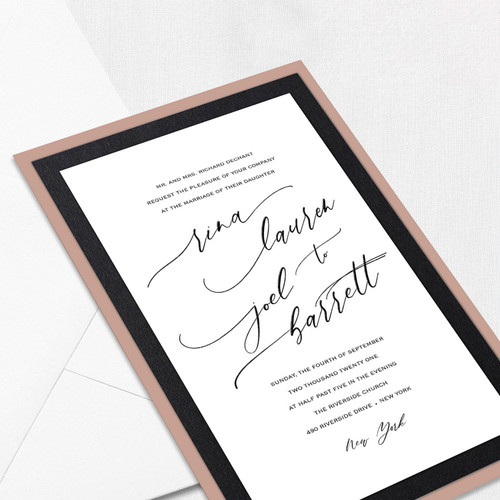 MR. AND MRS. RICHARD DECHANT
REQUEST THE PLEASURE OF YOUR COMPANY
AT THE MARRIAGE OF THEIR DAUGHTER
rina
lauren
to
joel
barrett
SUNDAY, THE FOURTH OF SEPTEMBER
TWO THOUSAND TWENTY ONE
AT HALF PAST FIVE IN THE EVENING
THE RIVERSIDE CHURCH
490 RIVERSIDE DRIVE • NEW YORK
New York